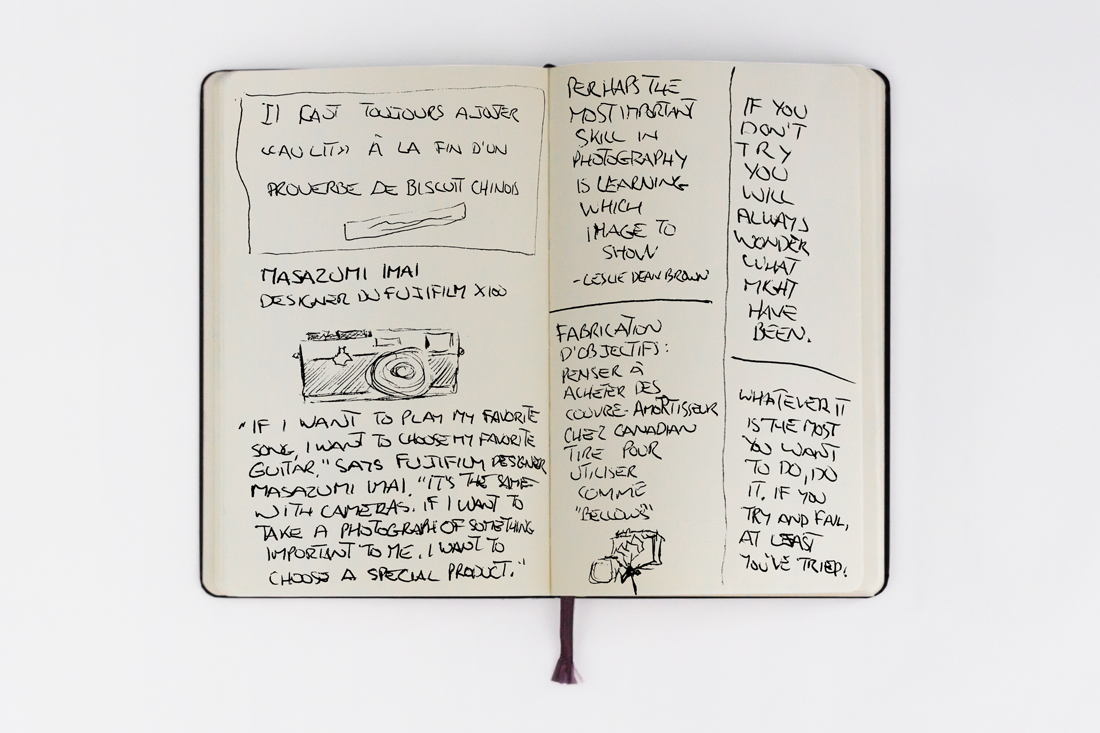 Il FAUT TOUJOURS AJOUTER
«AU LIT» À LA FIN D'UN
PROVERBE DE BISCUIT CHINOIS
MASAZUMI IMAI
DESIGNER DU FUJIFILM X100
"IF I WANT TO PLAY MY FAVORITE
SONG, I WANT TO CHOOSE MY FAVORITE
GUITAR," SAYS FUJIFILM DESIGNER
MASAZUMI IMAI. "IT'S THE SAME
WITH CAMERAS. IF I WANT TO
TAKE A PHOTOGRAPH OF SOMETHING
IMPORTANT TO ME, I WANT TO
CHOOSE A SPECIAL PRODUCT."
PERHAPS THE
MOST IMPORTANT
SKILL IN
PHOTOGRAPHY
IS LEARNING
WHICH
IMAGE TO
SHOW
-LESLIE DEAN BROWN
FABRICATION
D'OBJECTIFS:
PENSER À
ACHETER DES
COUVRE-AMORTISSEUR
CHEZ CANADIAN
TIRE POUR
UTILISER
COMME
"BELLOWS"
IF YOU
DON'T
TRY
YOU
WILL
ALWAYS
WONDER
WHAT
MIGHT
HAVE
BEEN.
WHATEVER IT
IS THE MOST
YOU WANT
TO DO, DO
IT. IF YOU
TRY AND FAIL,
AT LEAST
YOU'VE TRIED.